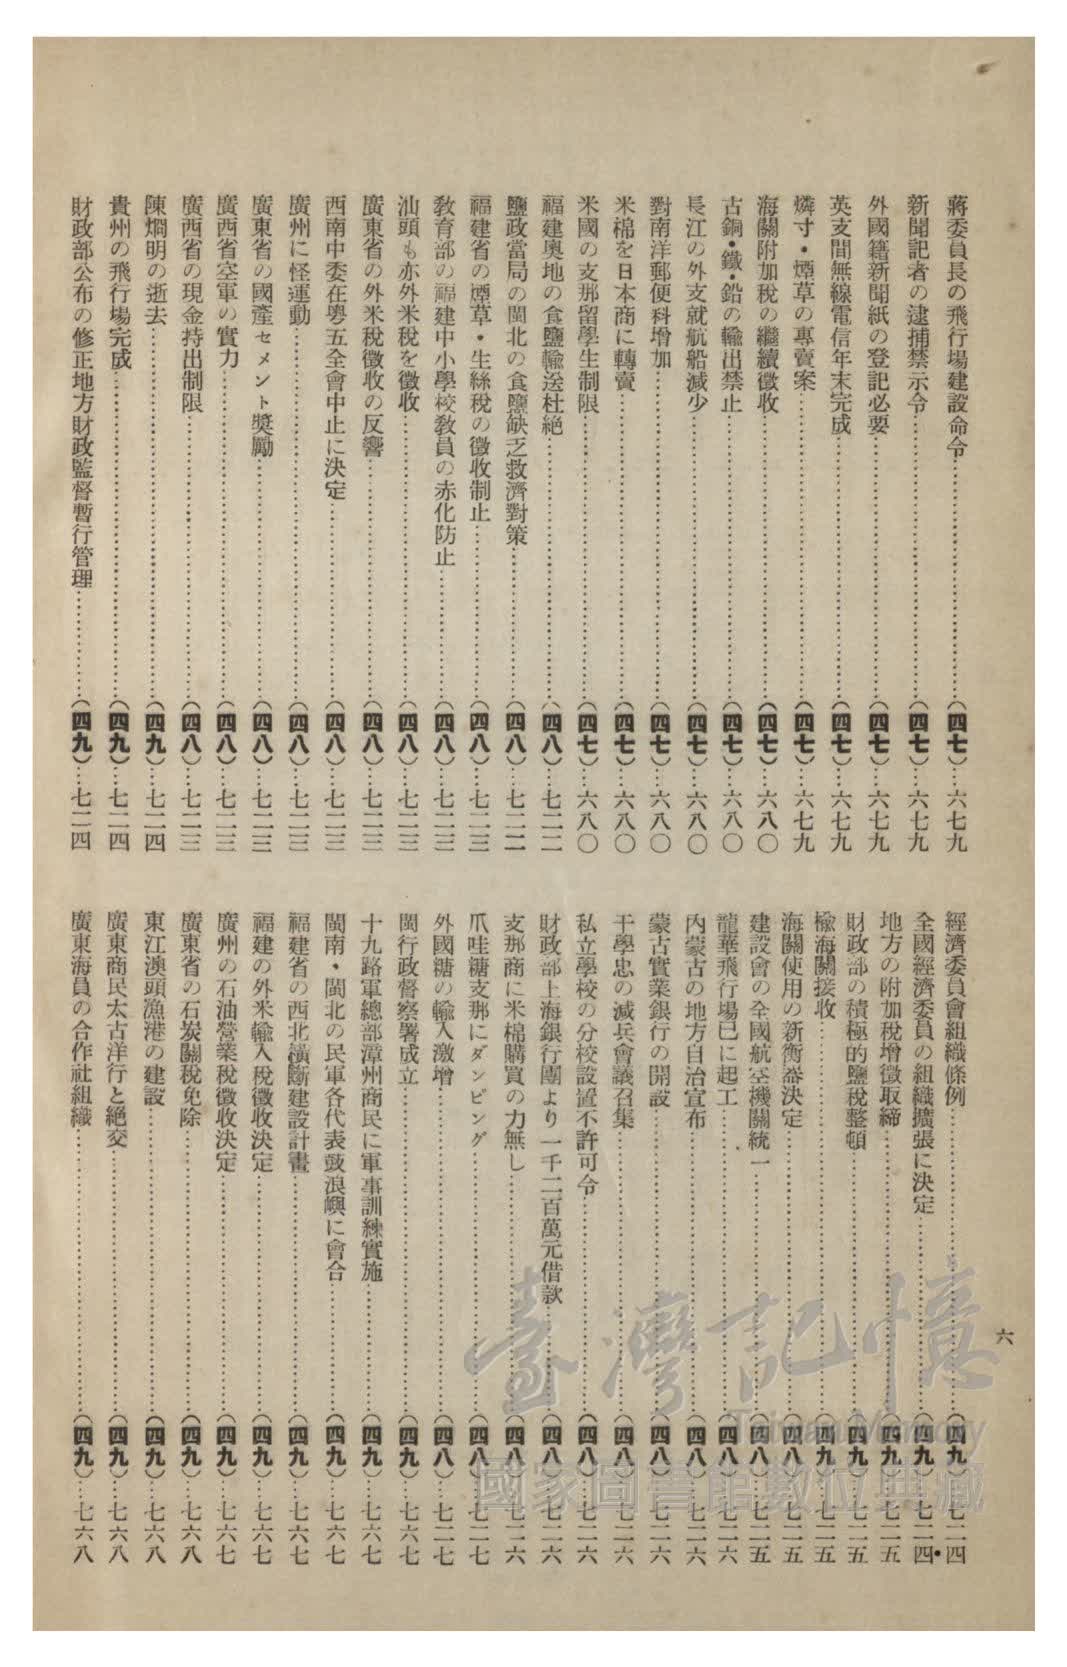 六
蔣委員長の飛行場建設命令……(四七)…六七九
新聞記者の逮捕禁示令……(四七)…六七九
外國籍新聞紙の登記必要……(四七)…六七九
英支間無線電信年末完成……(四七)…六七九
燐寸・煙草の專賣案……(四七)…六七九
海關附加稅の繼續徵收……(四七)…六八〇
古銅・鐵・鉛の輸出禁止……(四七)…六八〇
長江の外支就航船減少……(四七)…六八〇
對南洋郵便料增加……(四七)…六八〇
米棉を日本商に轉賣……(四七)…六八〇
米國の支那留學生制限……(四七)…六八〇
福建奧地の食鹽輸送杜絕……(四八)…七二二
鹽政當局の閩北の食鹽缺乏救濟對策……(四八)…七二二
福建省の煙草・生絲稅の徵收制止……(四八)…七二三
敎育部の福建中小學校敎員の赤化防止……(四八)…七二三
汕頭も亦外米稅を徵收……(四八)…七二三
廣東省の外米稅徵收の反響……(四八)…七二三
西南中委在粵五全會中止に決定……(四八)…七二三
廣州に怪運動……(四八)…七二三
廣東省の國產セメント獎勵……(四八)…七二三
廣西省空軍の實力……(四八)…七二三
廣西省の現金持出制限……(四八)…七二三
陳烱明の逝去……(四九)…七二四
貴州の飛行場完成……(四九)…七二四
財政部公布の修正地方財政監督暫行管理……(四九)…七二四
經濟委員會組織條例……(四九)…七二四
全國經濟委員の組織擴張に決定……(四九)…七二四
地方の附加稅增徵取締……(四九)…七二五
財政部の積極的鹽稅整頓……(四九)…七二五
檢海關接收……(四九)…七二五
海關使用の新衡器決定……(四八)…七二五
建設會の全國航空機關統一……(四八)…七二五
龍華飛行場已に起工……(四八)…七二六
內蒙古の地方自治宣布……(四八)…七二六
蒙古實業銀行の開設……(四八)…七二六
于學忠の減兵會議召集……(四八)…七二六
私立學校の分校設置不許可令……(四八)…七二六
財政部上海銀行團より一千二百萬元借款……(四八)…七二六
支那商に米棉購買の力無し……(四八)…七二六
爪哇糖支那にダンピング……(四八)…七二七
外國糖の輸入激增……(四八)…七二七
閩行政督察署成立……(四九)…七六七
十九路軍總部漳州商民に軍事訓練實施……(四九)…七六七
閩南・閩北の民軍各代表鼓浪嶼に會合……(四九)…七六七
福建省の西北橫斷建設計畫……(四九)…七六七
福建の外米輸入稅徵收決定……(四九)…七六七
廣州の石油營業稅徵收決定……(四九)…七六七
廣東省の石炭關稅免除……(四九)…七六八
東江澳頭漁港の建設……(四九)…七六八
廣東商民太古洋行と絕交……(四九)…七六八
廣東海員の合作社組織……(四九)…七六八
臺灣記憶
Taiwan Memory
國家圖書館數位典藏